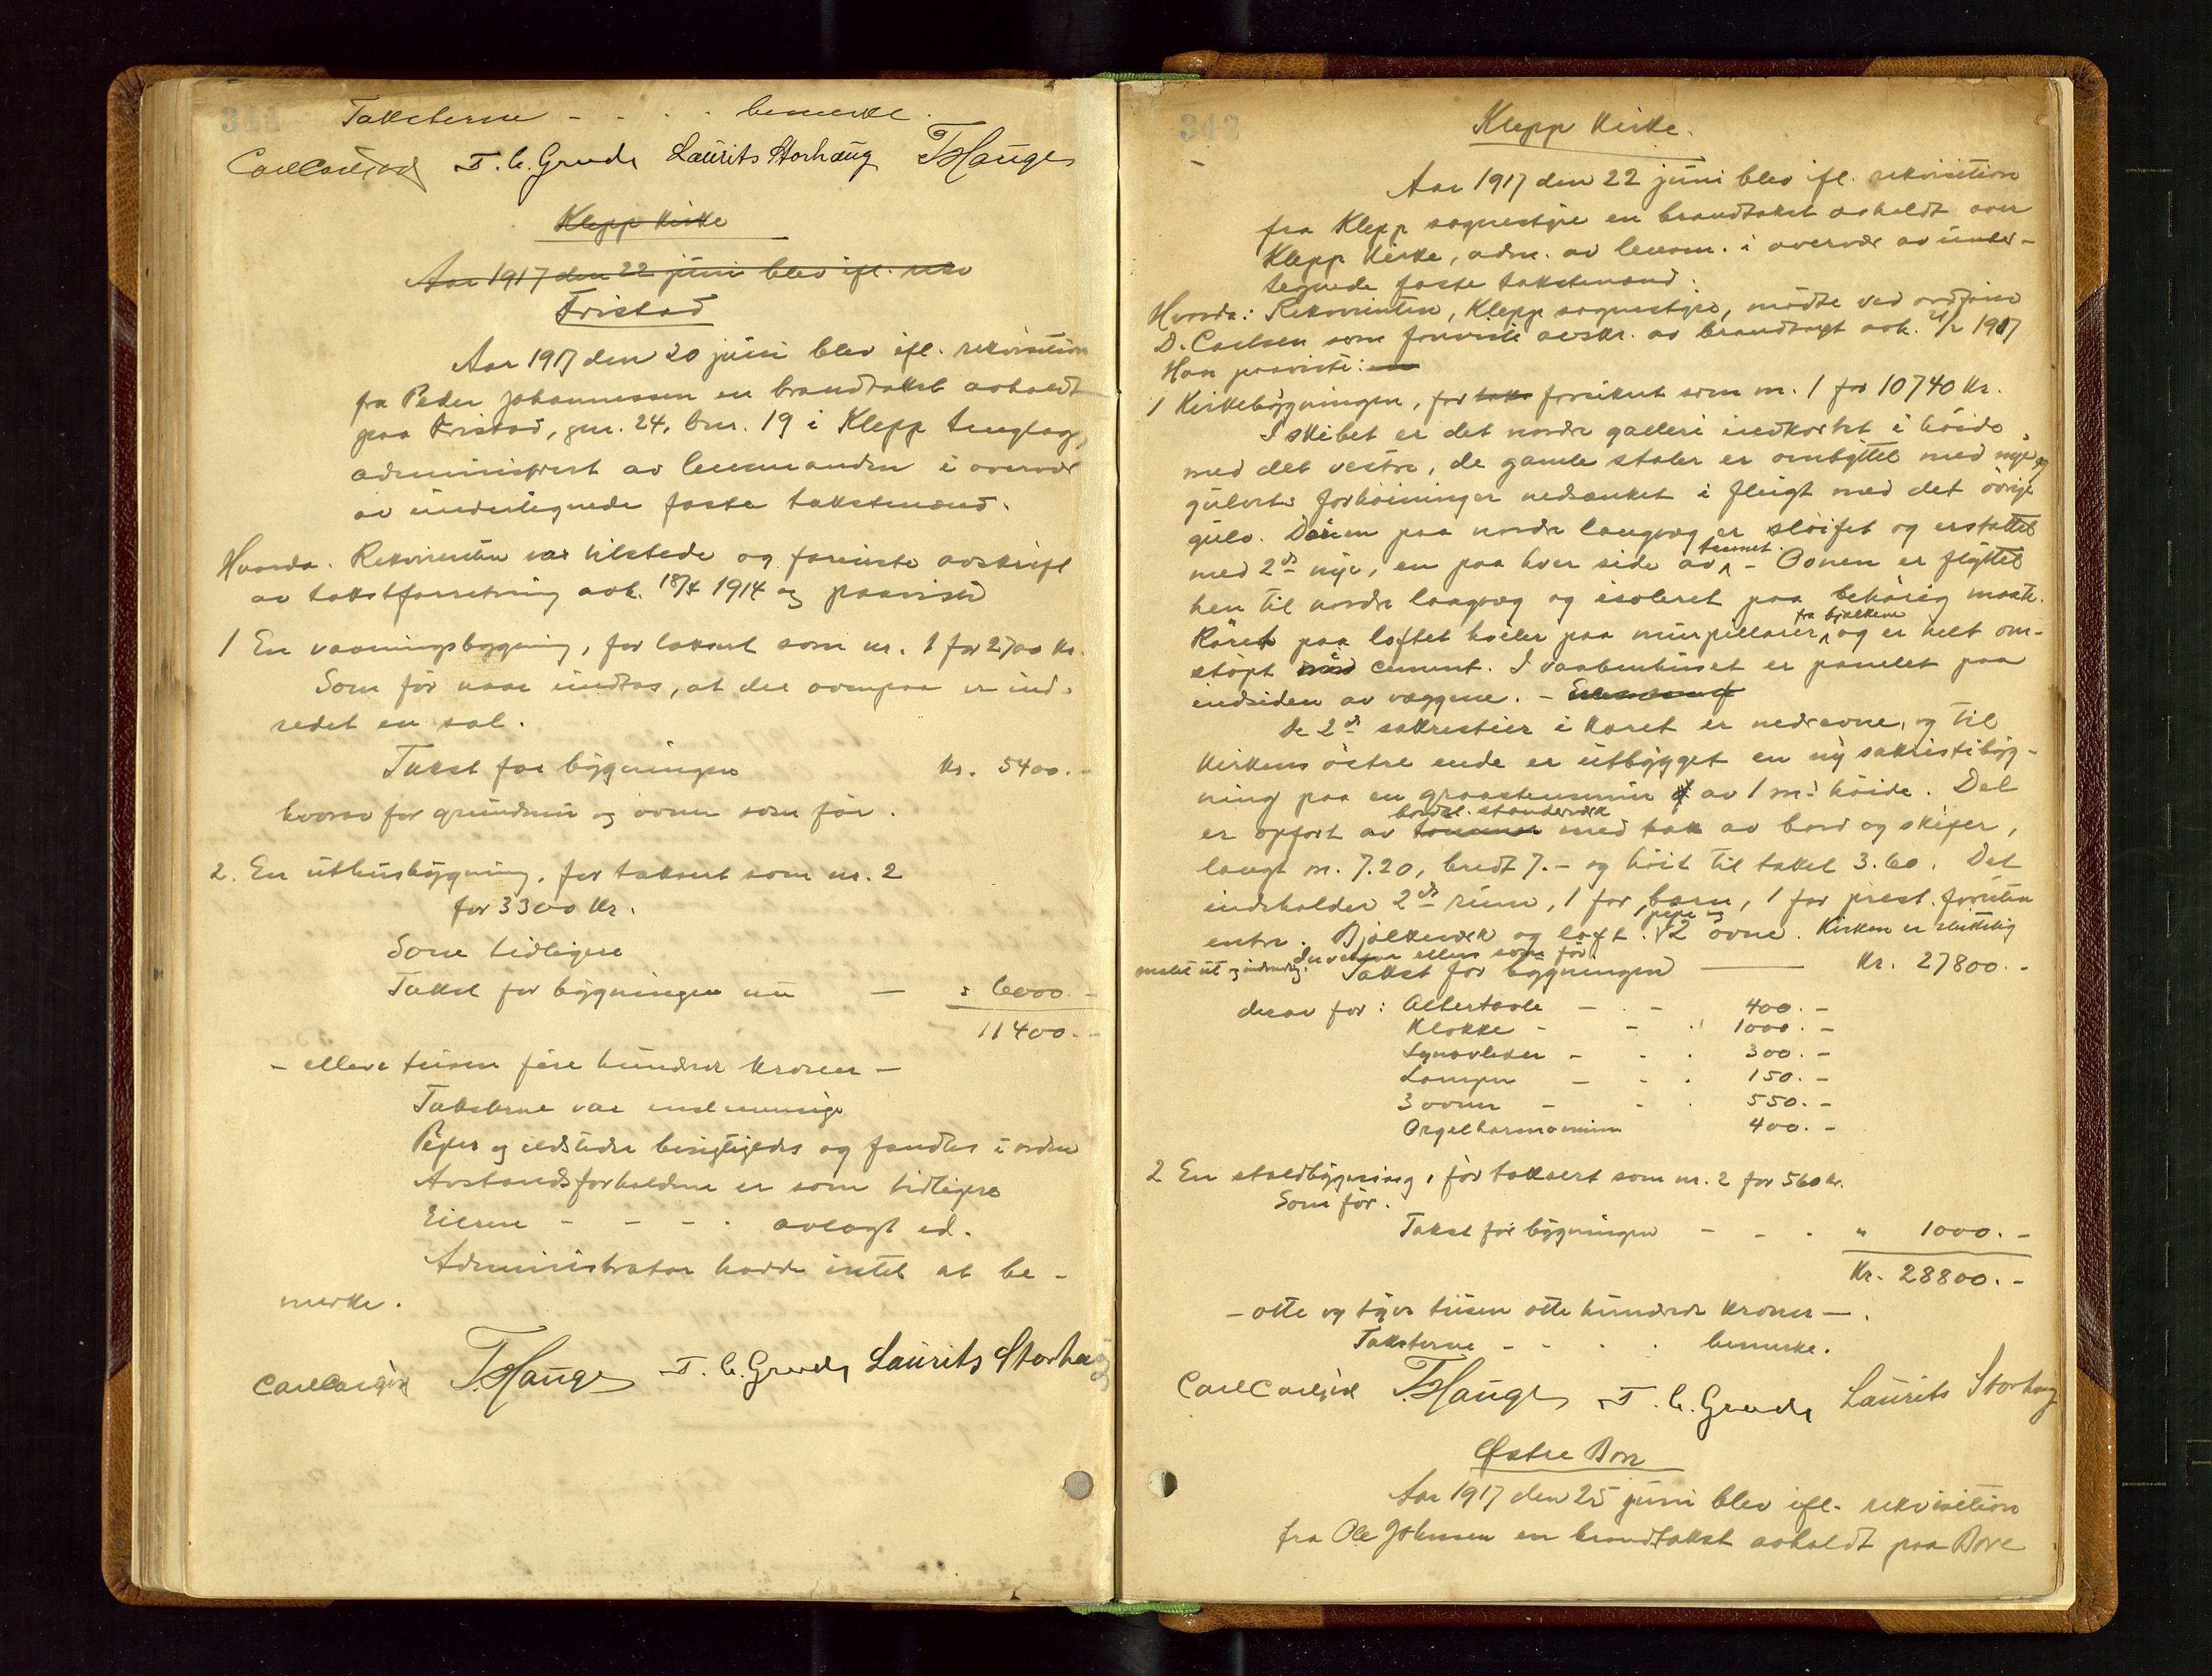 341
Taksterne - - - - bemerke.
T. C. Grude Laurits Storhaug T. Hauge
Klepp kirke
Aar 1917 den 22 juni blev ifl. rekv
Fristad
Aar 1917 den 20 juni blev ifl. rekvisition
fra Peder Johannessen en brandtakst avholdt
paa Fristad, gnr. 24, bnr. 19 i Klepp tinglag,
administrert av lensmanden i overvær
av undertegnede faste takstmænd.
Hvorda. Rekvirenten var tilstede og foreviste avskrift
av takstforretning avh. 18/4 1914 og paaviste
1 En vaaningsbygning, før taksert som nr. 1 for 2700 kr.
Som før naar undtas, at der ovenpaa er ind-
redet en sal.
Takst for bygningen kr. 5400.-
hvorav for grundmur og ovner som før.
2. En uthusbygning, før taksert som nr. 2
for 3300 kr.
Som tidligere
Takst for bygningen nu — " 6000.-
11400.-
- elleve tusen fire hundrede kroner -
Taksterne var enstemmige
Piper og ildsteder besigtigedes og fandtes i orden
Avstandsforholdene er som tidligere
Eieren - - - - avlagt ed.
Administrator hadde intet at be-
merke.
T. Hauge T. C. Grude Laurits Storhaug
343
Klepp kirke.
Aar 1917 den 22 juni blev ifl. rekvisition
fra Klepp sognestyre en brandtakst avholdt over
Klepp kirke, adm. av lensm. i overvær av under-
tegnede faste takstmænd.
Hvorda: Rekvirenten, Klepp sognestyre, mødte ved ordfører
D. Carlsen som foreviste avskr. av brandtakst avh. 1917
Han paaviste: en
1 Kirkebygningen, før takse forsikret som nr. 1 for 10740 kr.
I skibet er det nordre galleri indkortet i høide
med det vestre, de gamle stoler er ombyttet med nye og
gulvets forhøininger nedsænket i flugt med det øvrige
gulv. Døren paa nordre langvæg er sløifet og erstattet
med 2de nye, en paa hver side av taarnet. - Ovnen er flyttet
hen til nordre langvæg og isoleret paa behørig maate.
Røret paa loftet hviler paa murpillarer fra bjælkene og er helt om-
støpt med i cement. I vaabenhuset er panelet paa
indsiden av væggene. -
De 2de sakrestier i koret er nedrevne, og til
kirkens østre ende er utbygget en ny sakristibyg-
ning paa en graastensmur av 1 m's høide. Det
er opført av tømmer bordkl. standerverk med tak av bord og skifer,
langt m. 7.20, bredt 7.- og høit til taket 3.60. Det
indeholder 2de rum, 1 for barn, 1 for prest, foruten
entre. Bjelkeverk og loft. 1 pipe og 2 ovne. Kirken er
malet ut og indvendig. Inventar ellers som før.
Takst for bygningen — kr. 27800.-
derav for: Altertavle - - - 400.-
Klokke - - - 1000.-
Lynavleder - - - 300.-
Lamper - - - 150.-
3 ovner - - - 550.-
Orgelharmonium 400.-
2 En staldbygning, før taksert som nr. 2 for 560 kr.
Som før.
Takst for bygningen - - - " 1000.-
Kr. 28800.-
- otte og tyve tusen otte hundrede kroner -.
Taksterne - - - - bemerke.
T. Hauge T. C. Grude Laurits Storhaug
Østre Bore
Aar 1917 den 25 juni blev ifl. rekvisition
fra Ole Johnsen en brandtakst avholdt paa Bore